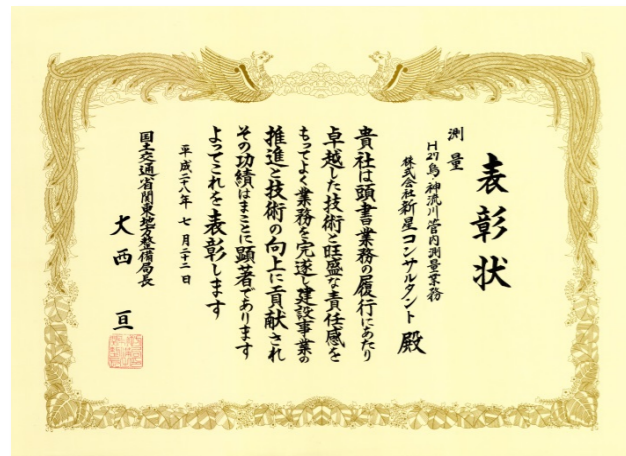 表彰状
測量
H27烏・神流川管内測量業務
株式会社新星コンサルタント 殿
貴社は頭書業務の履行にあたり
卓越した技術と旺盛な責任感を
もってよく業務を完遂し建設事業の
推進と技術の向上に貢献され
その功績はまことに顕著であります
よってこれを表彰します
平成二十八年 七月二十二日
国土交通省関東地方整備局長
大西 亘